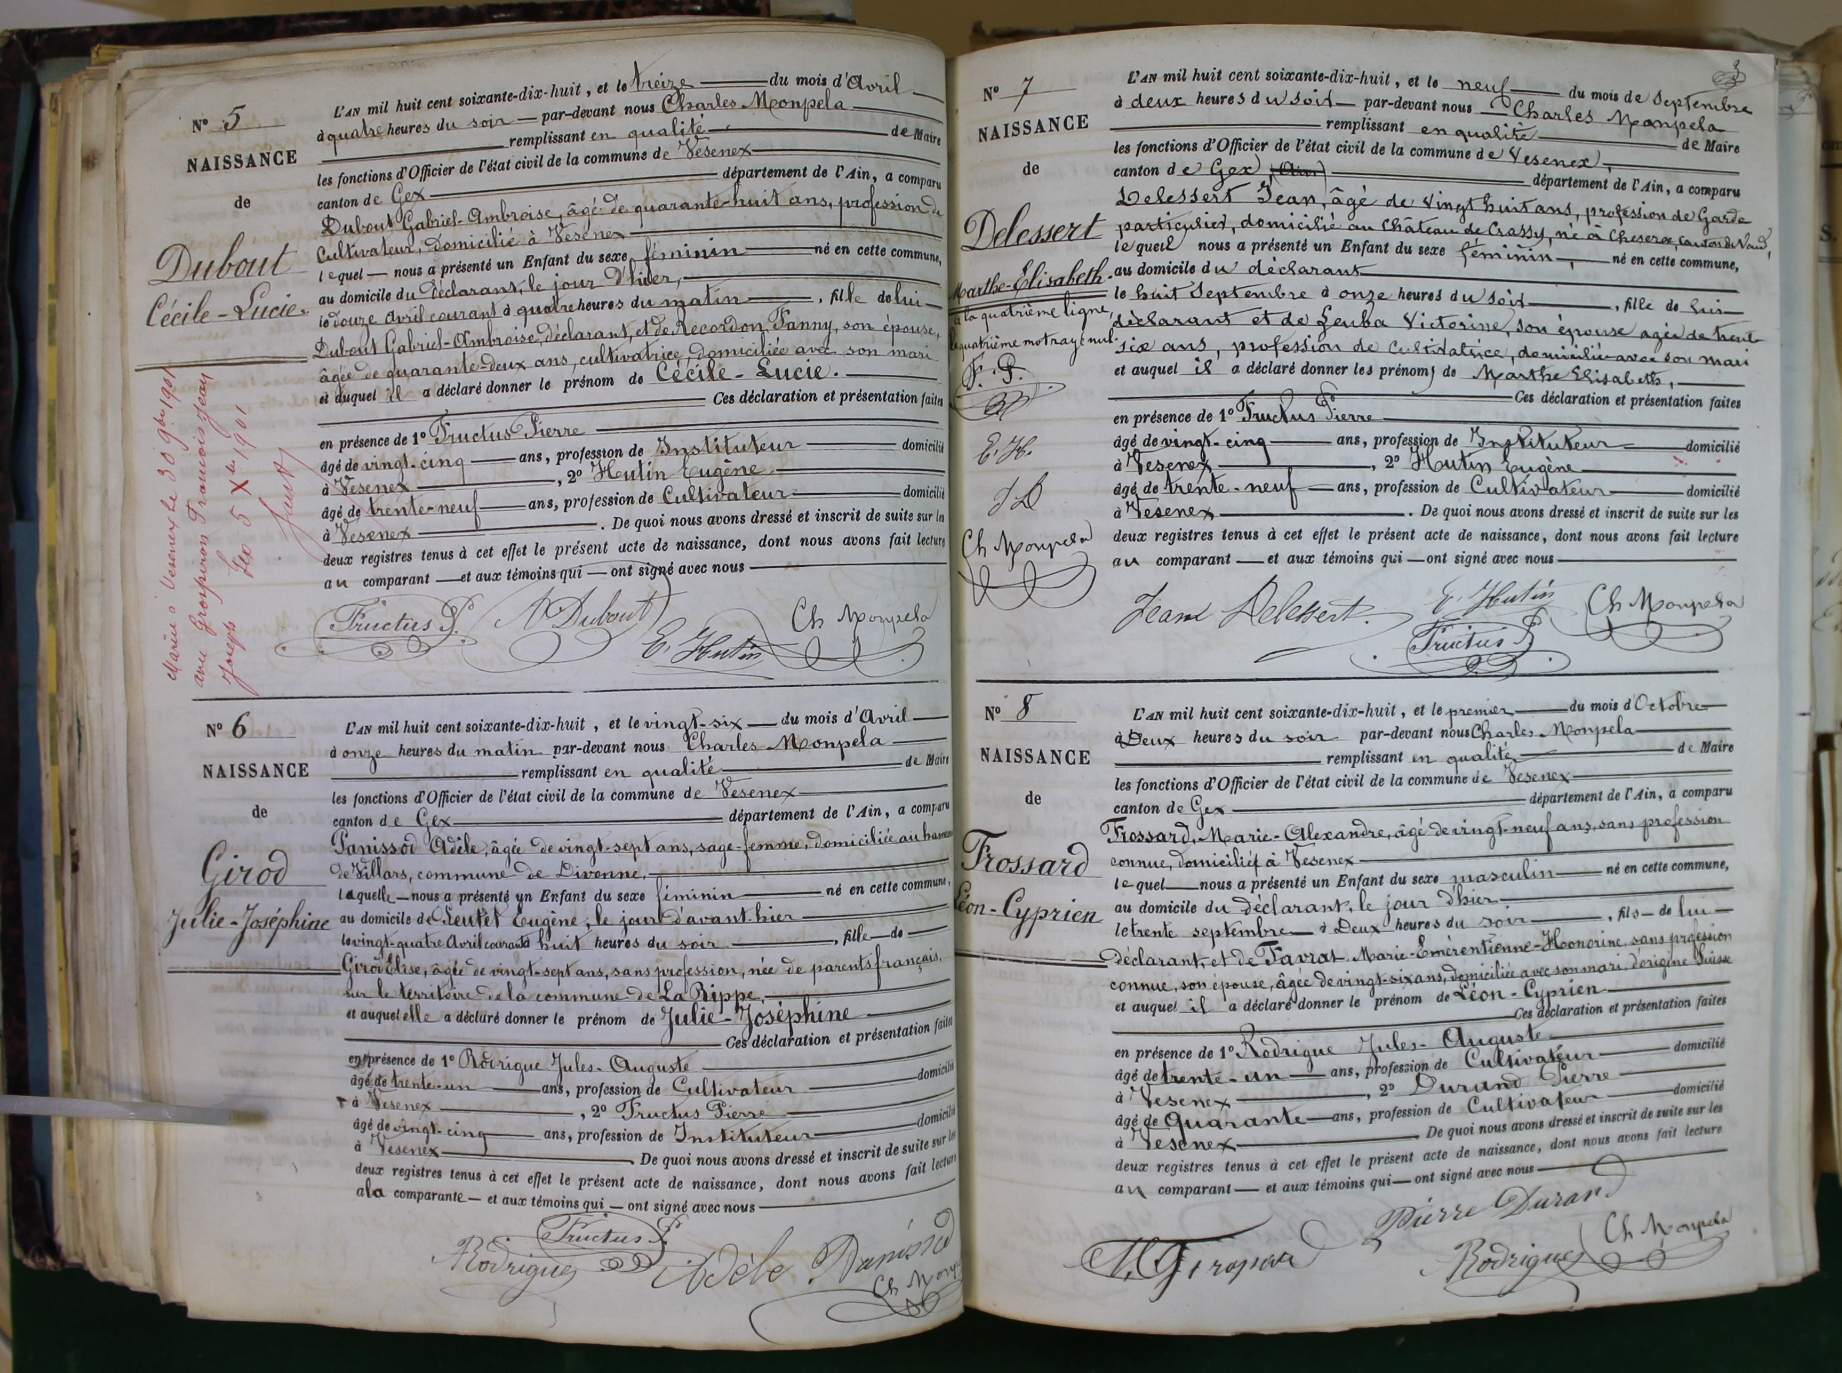 N° 5
NAISSANCE
de
Dubout
Cécile-Lucie.
Marié à Vesenex le 30 9bre 1901
avec Grospiron François Jean
Joseph Le 5 Xbre 1901
L'AN mil huit cent soixante-dix-huit, et le treize du mois d'Avril
à quatre heures du soir par-devant nous Charles Monpela
remplissant en qualité de Maire
les fonctions d'Officier de l'état civil de la commune de Vesenex
canton de Gex département de l'Ain, a comparu
Dubout Gabriel-Ambroise, âgé de quarante-huit ans, profession de
Cultivateur, domicilié à Vesenex
lequel nous a présenté un Enfant du sexe féminin né en cette commune,
au domicile du déclarant, le jour d'hier,
le douze Avril courant à quatre heures du matin, fille de lui
Dubout Gabriel-Ambroise, déclarant, et de Recordon Fanny, son épouse,
âgée de quarante-deux ans, cultivatrice, domiciliée avec son mari
et auquel il a déclaré donner le prénom de Cécile-Lucie.
Ces déclaration et présentation faites
en présence de 1° Fructus Pierre
âgé de vingt-cinq ans, profession de Instituteur domicilié
à Vesenex, 2° Hutin Eugène
âgé de trente-neuf ans, profession de Cultivateur domicilié
à Vesenex. De quoi nous avons dressé et inscrit de suite sur les
deux registres tenus à cet effet le présent acte de naissance, dont nous avons fait lecture
au comparant et aux témoins qui ont signé avec nous
Fructus P. Dubout E. Hutin Ch Monpela
N° 6
NAISSANCE
de
Girod
Julie-Joséphine
L'AN mil huit cent soixante-dix-huit, et le vingt-six du mois d'Avril
à onze heures du matin par-devant nous Charles Monpela
remplissant en qualité de Maire
les fonctions d'Officier de l'état civil de la commune de Vesenex
canton de Gex département de l'Ain, a comparu
Panissod Adèle, âgée de vingt-sept ans, sage-femme, domiciliée au hameau
de Villars, commune de Divonne,
laquelle nous a présenté un Enfant du sexe féminin né en cette commune,
au domicile de Eugène, le jour d'avant-hier
le vingt-quatre Avril courant à huit heures du soir, fille de
Girod Elise, âgée de vingt-sept ans, sans profession, née de parents français,
sur le territoire de la commune de La Rippe,
et auquel elle a déclaré donner le prénom de Julie-Joséphine
Ces déclaration et présentation faites
en présence de 1° Rodrigue Jules-Auguste
âgé de trente-un ans, profession de Cultivateur domicilié
à Vesenex, 2° Fructus Pierre
âgé de vingt-cinq ans, profession de Instituteur domicilié
à Vesenex De quoi nous avons dressé et inscrit de suite sur les
deux registres tenus à cet effet le présent acte de naissance, dont nous avons fait lecture
à la comparante et aux témoins qui ont signé avec nous
Fructus P.
Rodrigue Adèle Panissod
Ch Monp
3
N° 7
NAISSANCE
de
Delessert
Marthe-Elisabeth.
à la quatrième ligne,
quatrième mot rayé nul.
F. P.
E. H.
J D
Ch Monpela
L'AN mil huit cent soixante-dix-huit, et le neuf du mois de Septembre
à deux heures du soir par-devant nous Charles Monpela
remplissant en qualité de Maire
les fonctions d'Officier de l'état civil de la commune de Vesenex,
canton de Gex (Ain) département de l'Ain, a comparu
Delessert Jean, âgé de vingt huit ans, profession de Garde
particulier, domicilié au Château de Crassy, né à Cheserex, canton de Vaud,
lequel nous a présenté un Enfant du sexe féminin, né en cette commune,
au domicile du déclarant
le huit Septembre à onze heures du soir, fille de lui
déclarant et de Leuba Victorine, son épouse agée de trente
six ans, profession de Cultivatrice, domiciliée avec son mari
et auquel il a déclaré donner les prénoms de Marthe Elisabeth,
Ces déclaration et présentation faites
en présence de 1° Fructus Pierre
âgé de vingt-cinq ans, profession de Instituteur domicilié
à Vesenex, 2° Hutin Eugène
âgé de trente-neuf ans, profession de Cultivateur domicilié
à Vesenex. De quoi nous avons dressé et inscrit de suite sur les
deux registres tenus à cet effet le présent acte de naissance, dont nous avons fait lecture
au comparant et aux témoins qui ont signé avec nous
Jean Delessert. E. Hutin Ch Monpela
Fructus P
N° 8
NAISSANCE
de
Frossard
Léon-Cyprien
L'AN mil huit cent soixante-dix-huit, et le premier du mois d'Octobre
à Deux heures du soir par-devant nous Charles Monpela
remplissant en qualité de Maire
les fonctions d'Officier de l'état civil de la commune de Vesenex
canton de Gex département de l'Ain, a comparu
Frossard, Marie-Alexandre, âgé de vingt-neuf ans, sans profession
connue, domicilié à Vesenex
lequel nous a présenté un Enfant du sexe masculin né en cette commune,
au domicile du déclarant, le jour d'hier
le trente septembre à Deux heures du soir, fils de lui
déclarant, et de Favrat Marie-Emérentienne-Honorine, sans profession
connue, son épouse, âgée de vingt-six ans, domiciliée avec son mari, d'origine Suisse
et auquel il a déclaré donner le prénom de Léon-Cyprien
Ces déclaration et présentation faites
en présence de 1° Rodrigue Jules-Auguste
âgé de trente-un ans, profession de Cultivateur domicilié
à Vesenex, 2° Durand Pierre
âgé de Quarante ans, profession de Cultivateur domicilié
à Vesenex De quoi nous avons dressé et inscrit de suite sur les
deux registres tenus à cet effet le présent acte de naissance, dont nous avons fait lecture
au comparant et aux témoins qui ont signé avec nous
Pierre Durand
Rodrigue Ch Monpela